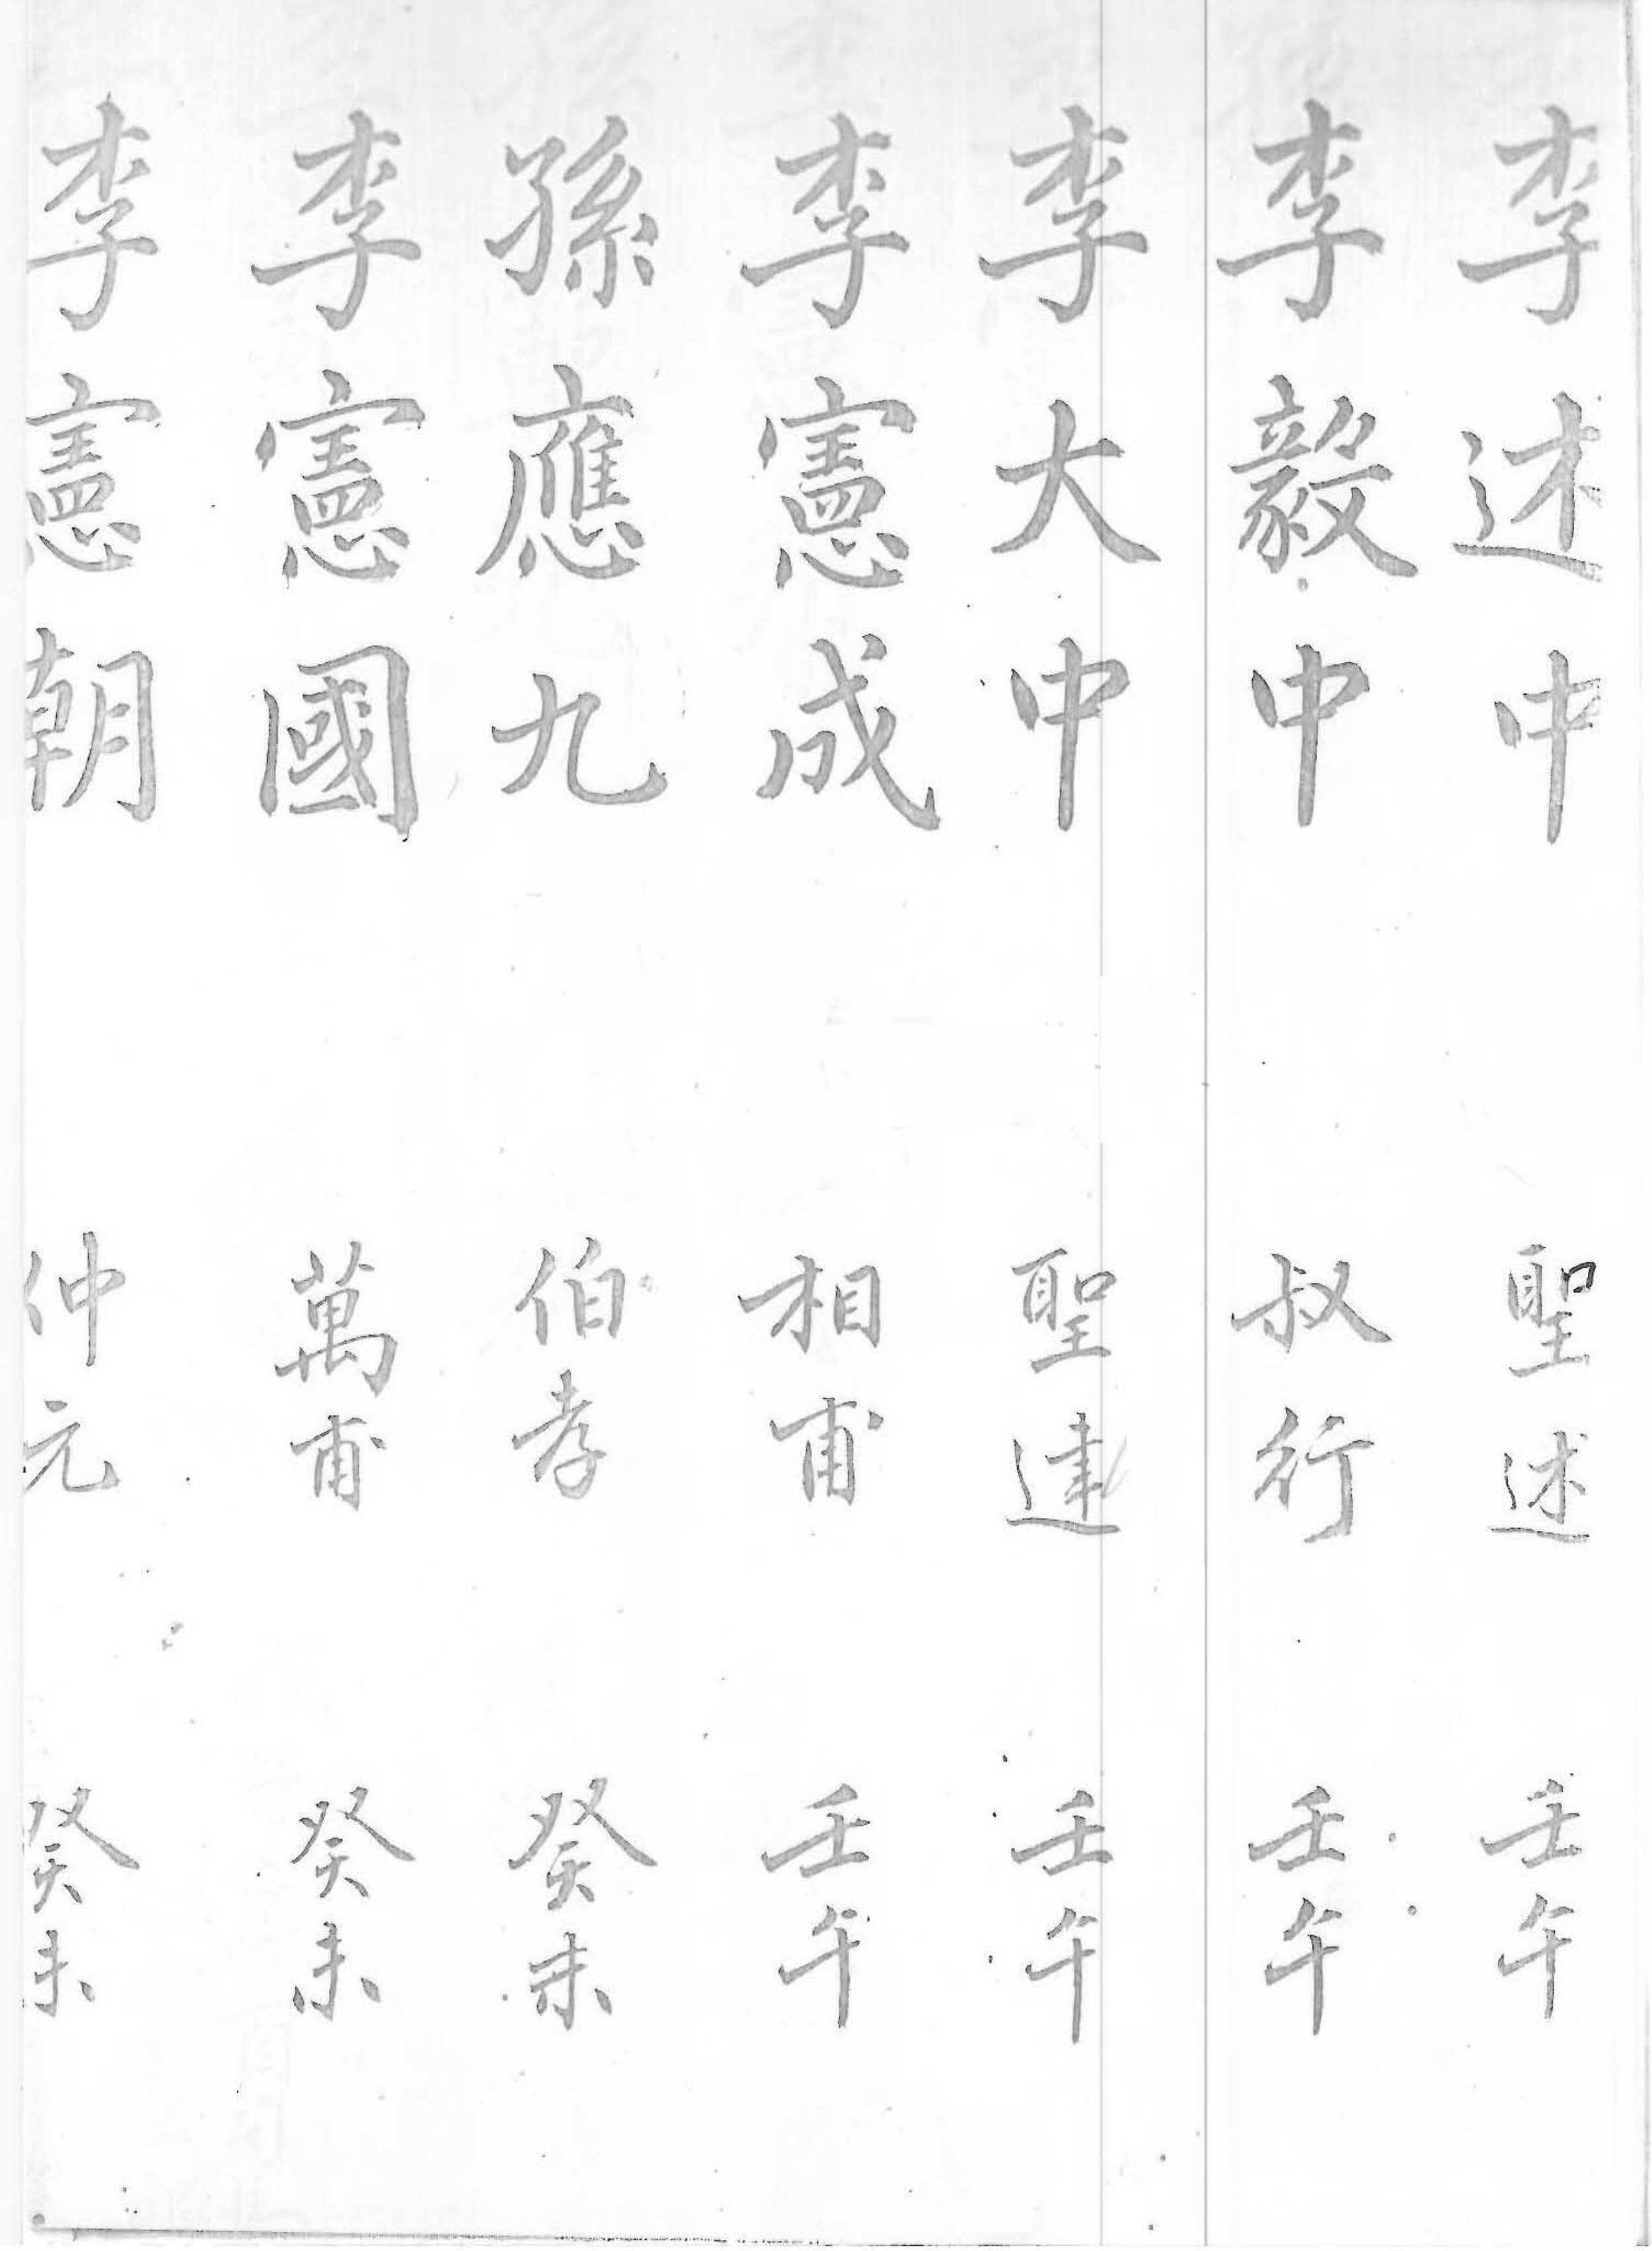 李述中 聖述 壬午
李毅中 叔行 壬午
李大中 聖達 壬午
李憲成 相甫 壬午
孫應九 伯孝 癸未
李憲國 萬甫 癸未
李憲朝 仲元 癸未